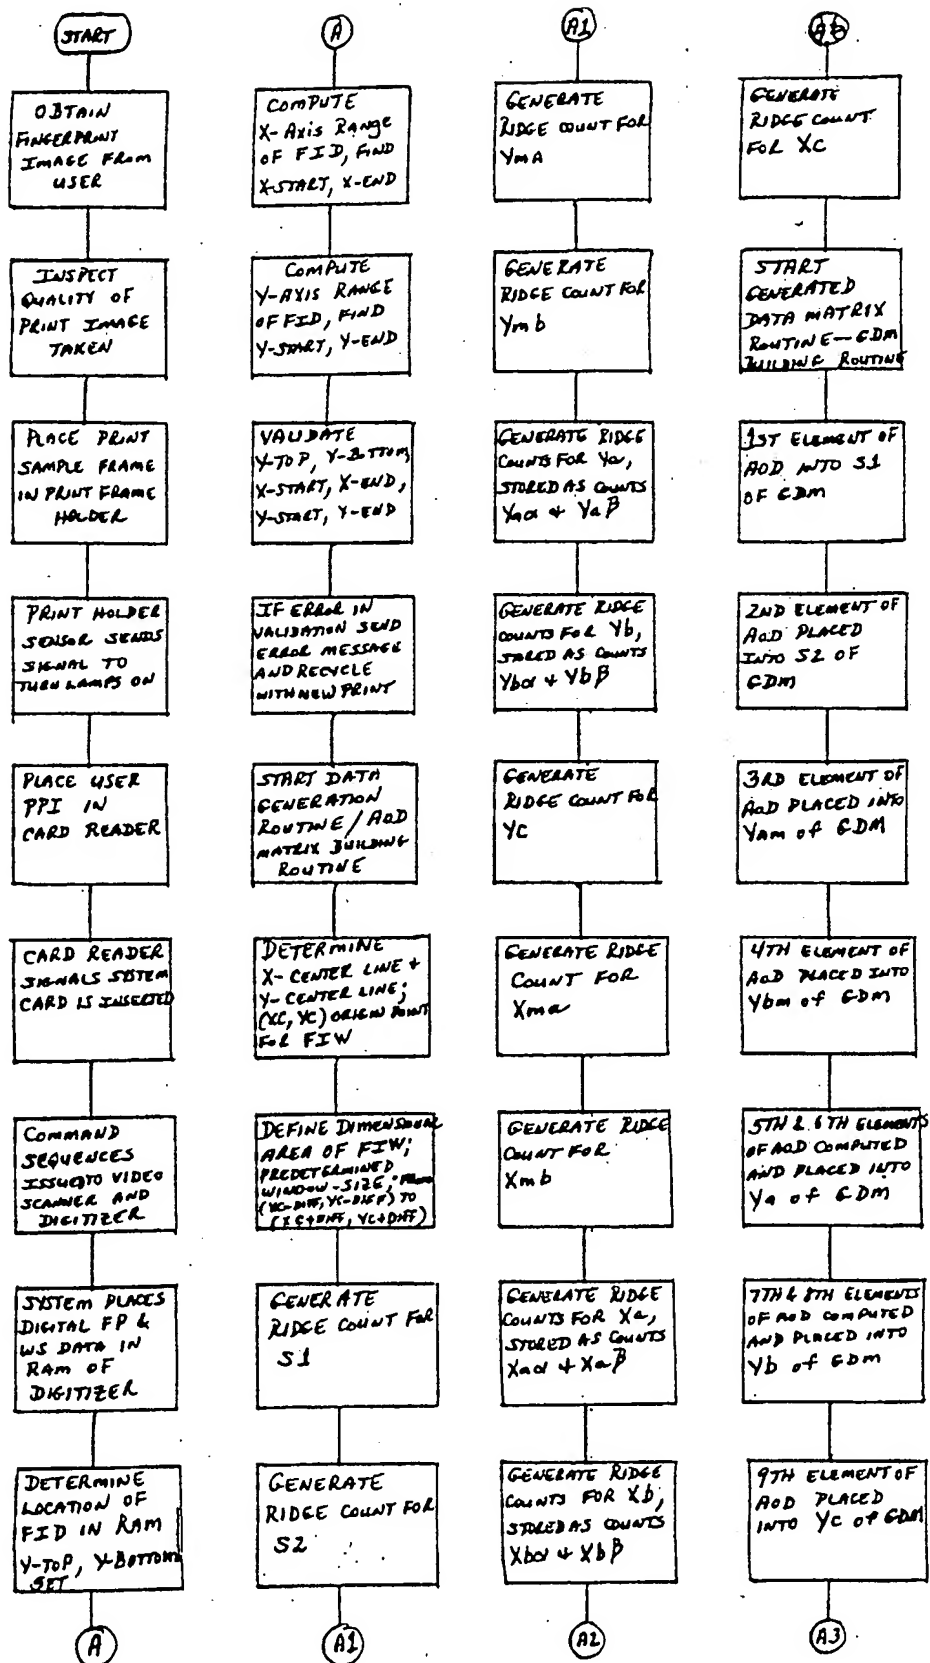 START
OBTAIN
FINGERPRINT
IMAGE FROM
USER
INSPECT
QUALITY OF
PRINT IMAGE
TAKEN
PLACE PRINT
SAMPLE FRAME
IN PRINT FRAME
HOLDER
PRINT HOLDER
SENSOR SENDS
SIGNAL TO
TURN LAMPS ON
PLACE USER
PPI IN
CARD READER
CARD READER
SIGNALS SYSTEM
CARD IS INSERTED
COMMAND
SEQUENCES
ISSUED TO VIDEO
SCANNER AND
DIGITIZER
SYSTEM PLACES
DIGITAL FP &
WS DATA IN
RAM OF
DIGITIZER
DETERMINE
LOCATION OF
FID IN RAM
Y-TOP, Y-BOTTOM
SET
A
A
COMPUTE
X-Axis Range
OF FID, FIND
X-START, X-END
COMPUTE
Y-AXIS RANGE
OF FID, FIND
Y-START, Y-END
VALIDATE
Y-TOP, Y-BOTTOM,
X-START, X-END,
Y-START, Y-END
IF ERROR IN
VALIDATION SEND
ERROR MESSAGE
AND RECYCLE
WITH NEW PRINT
START DATA
GENERATION
ROUTINE / AOD
MATRIX BUILDING
ROUTINE
DETERMINE
X-CENTER LINE +
Y-CENTER LINE;
(XC, YC) ORIGIN POINT
FOR FIW
DEFINE DIMENSIONAL
AREA OF FIW;
PREDETERMINED
WINDOW-SIZE, FROM
(XC-DIFF, YC-DIFF) TO
(XC+DIFF, YC+DIFF)
GENERATE
RIDGE COUNT FOR
S1
GENERATE
RIDGE COUNT FOR
S2
A1
A1
GENERATE
RIDGE COUNT FOR
YmA
GENERATE
RIDGE COUNT FOR
Ymb
GENERATE RIDGE
COUNTS FOR Ya,
STORED AS COUNTS
Yaα + Yaβ
GENERATE RIDGE
COUNTS FOR Yb,
STORED AS COUNTS
Ybα + Ybβ
GENERATE
RIDGE COUNT FOR
YC
GENERATE RIDGE
COUNT FOR
Xma
GENERATE RIDGE
COUNT FOR
Xmb
GENERATE RIDGE
COUNTS FOR Xa,
STORED AS COUNTS
Xaα + Xaβ
GENERATE RIDGE
COUNTS FOR Xb,
STORED AS COUNTS
Xbα + Xbβ
A2
GENERATE
RIDGE COUNT
FOR XC
START
GENERATED
DATA MATRIX
ROUTINE—GDM
BUILDING ROUTINE
1ST ELEMENT OF
AOD INTO S1
OF GDM
2ND ELEMENT OF
AOD PLACED
INTO S2 OF
GDM
3RD ELEMENT OF
AOD PLACED INTO
Yam of GDM
4TH ELEMENT OF
AOD PLACED INTO
Ybm of GDM
5TH & 6TH ELEMENTS
OF AOD COMPUTED
AND PLACED INTO
Ya of GDM
7TH & 8TH ELEMENTS
OF AOD COMPUTED
AND PLACED INTO
Yb of GDM
9TH ELEMENT OF
AOD PLACED
INTO YC OF GDM
A3